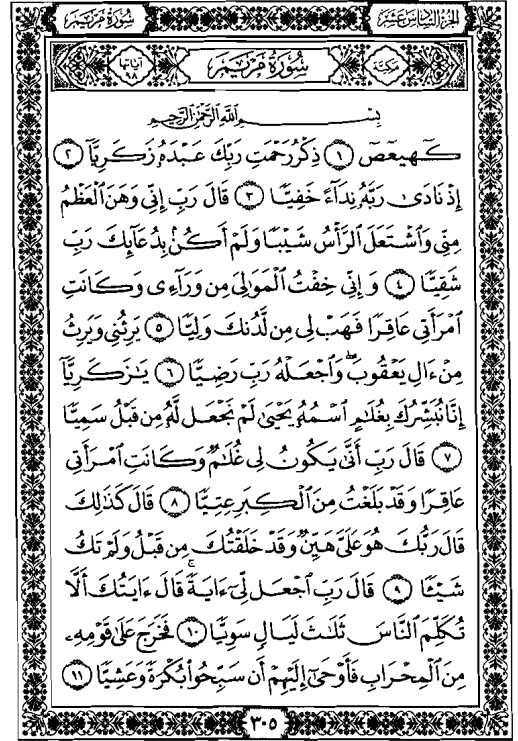 سُورَةُ مَرْيَم الجزء السادس عشر
آياتها ٩٨ سُورَةُ مَرْيَم مكية
بِسْمِ ٱللَّهِ ٱلرَّحْمَٰنِ ٱلرَّحِيمِ
كٓهيعٓصٓ ١ ذِكْرُ رَحْمَتِ رَبِّكَ عَبْدَهُۥ زَكَرِيَّآ ٢
إِذْ نَادَىٰ رَبَّهُۥ نِدَآءً خَفِيًّا ٣ قَالَ رَبِّ إِنِّى وَهَنَ ٱلْعَظْمُ
مِنِّى وَٱشْتَعَلَ ٱلرَّأْسُ شَيْبًا وَلَمْ أَكُنۢ بِدُعَآئِكَ رَبِّ
شَقِيًّا ٤ وَإِنِّى خِفْتُ ٱلْمَوَٰلِىَ مِن وَرَآءِى وَكَانَتِ
ٱمْرَأَتِى عَاقِرًا فَهَبْ لِى مِن لَّدُنكَ وَلِيًّا ٥ يَرِثُنِى وَيَرِثُ
مِنْ ءَالِ يَعْقُوبَ ۖ وَٱجْعَلْهُ رَبِّ رَضِيًّا ٦ يَٰزَكَرِيَّآ
إِنَّا نُبَشِّرُكَ بِغُلَٰمٍ ٱسْمُهُۥ يَحْيَىٰ لَمْ نَجْعَل لَّهُۥ مِن قَبْلُ سَمِيًّا
٧ قَالَ رَبِّ أَنَّىٰ يَكُونُ لِى غُلَٰمٌ وَكَانَتِ ٱمْرَأَتِى
عَاقِرًا وَقَدْ بَلَغْتُ مِنَ ٱلْكِبَرِ عِتِيًّا ٨ قَالَ كَذَٰلِكَ
قَالَ رَبُّكَ هُوَ عَلَىَّ هَيِّنٌ وَقَدْ خَلَقْتُكَ مِن قَبْلُ وَلَمْ تَكُ
شَيْـًٔا ٩ قَالَ رَبِّ ٱجْعَل لِّىٓ ءَايَةً ۚ قَالَ ءَايَتُكَ أَلَّا
تُكَلِّمَ ٱلنَّاسَ ثَلَٰثَ لَيَالٍ سَوِيًّا ١٠ فَخَرَجَ عَلَىٰ قَوْمِهِۦ
مِنَ ٱلْمِحْرَابِ فَأَوْحَىٰٓ إِلَيْهِمْ أَن سَبِّحُوا۟ بُكْرَةً وَعَشِيًّا ١١
٣٠٥